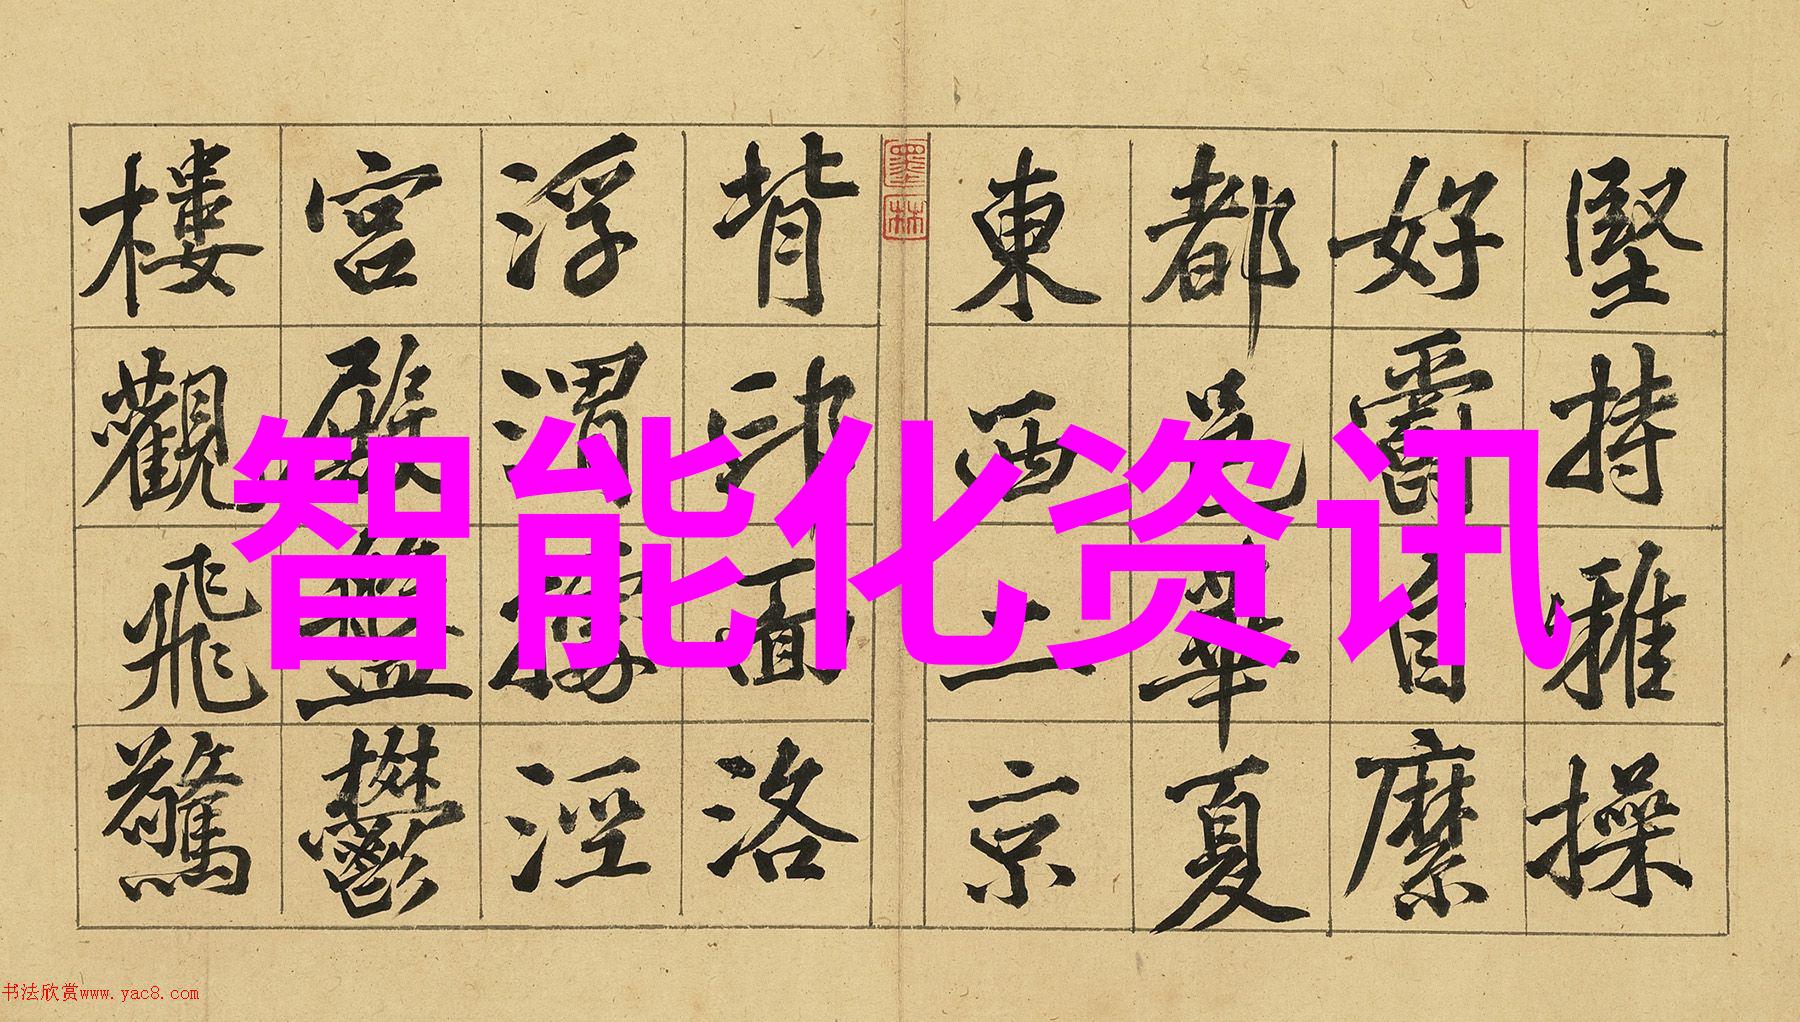 堅持雅操
好爵自縻
都邑華夏
東西二京
墨林
背邙面洛
浮渭據涇
宮殿盤鬱
樓觀飛驚
智能化资讯
书法欣赏www.yac8.com